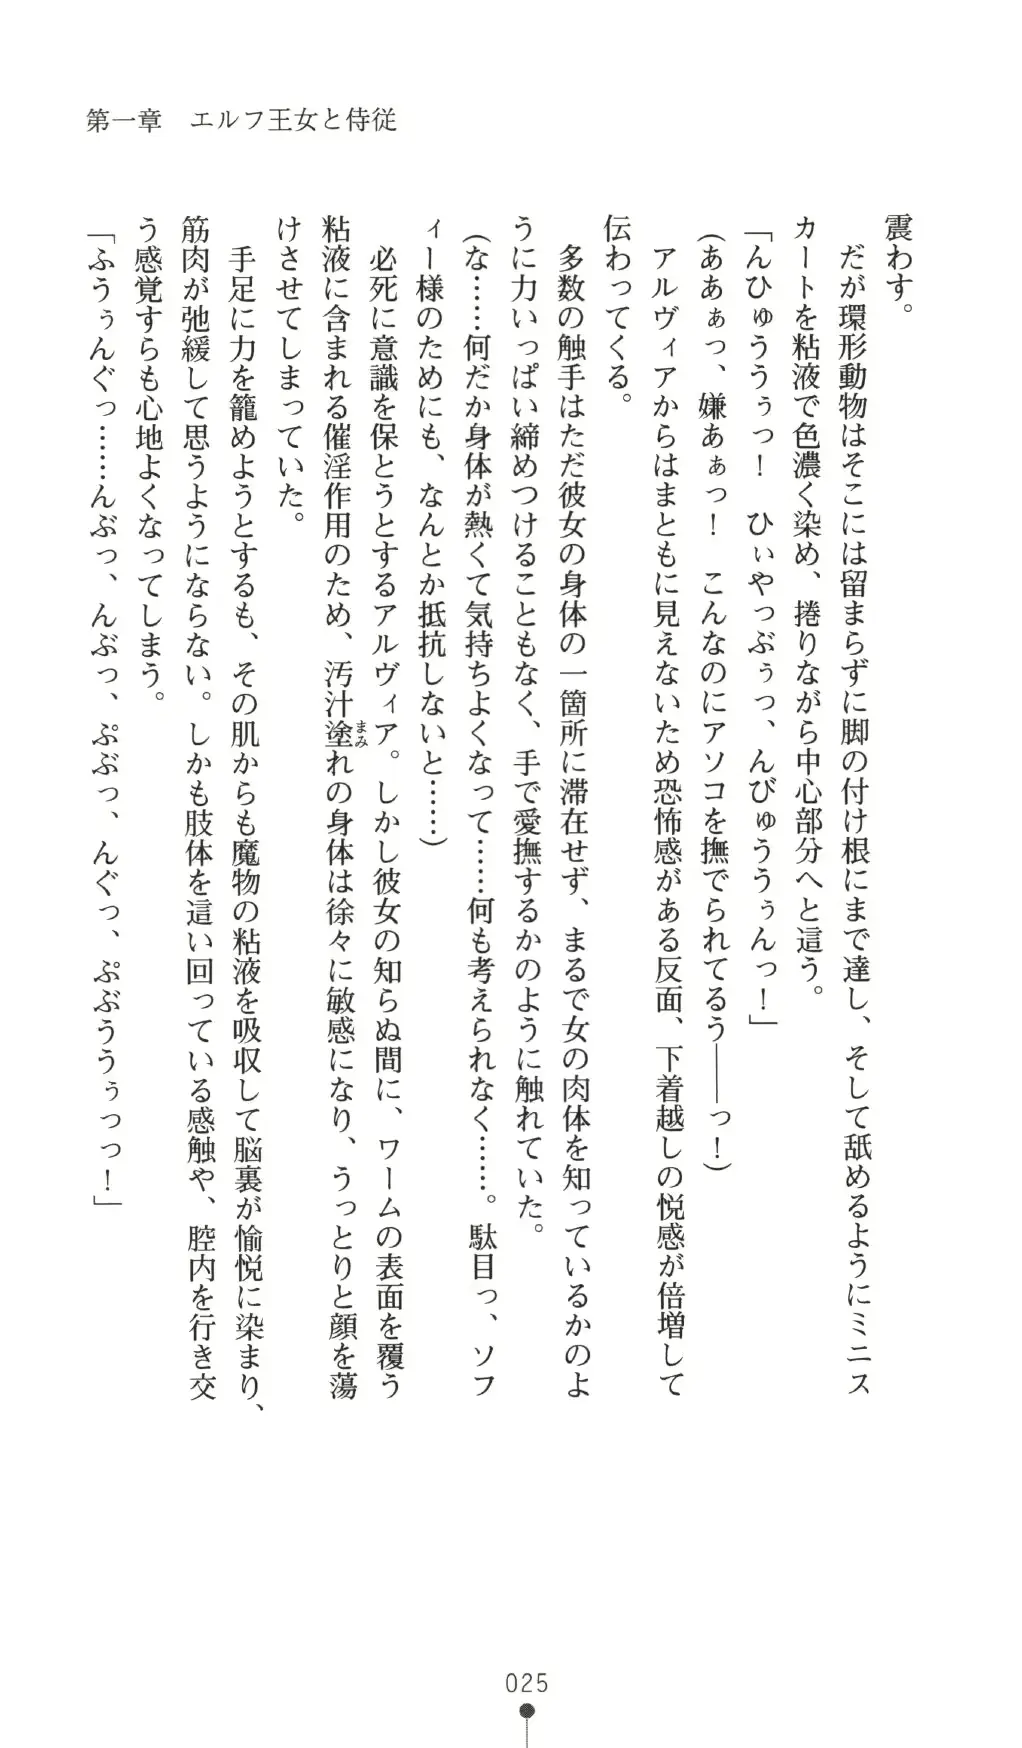 第一章　エルフ王女と侍従
震わす。
　だが環形動物はそこには留まらずに脚の付け根にまで達し、そして舐めるようにミニス
カートを粘液で色濃く染め、捲りながら中心部分へと這う。
「んひゅううぅっ！　ひぃやっぶぅっ、んびゅううぅんっ！」
（ああぁっ、嫌あぁっ！　こんなのにアソコを撫でられてるう――っ！）
　アルヴィアからはまともに見えないため恐怖感がある反面、下着越しの悦感が倍増して
伝わってくる。
　多数の触手はただ彼女の身体の一箇所に滞在せず、まるで女の肉体を知っているかのよ
うに力いっぱい締めつけることもなく、手で愛撫するかのように触れていた。
（な……何だか身体が熱くて気持ちよくなって……何も考えられなく……。駄目っ、ソフ
ィー様のためにも、なんとか抵抗しないと……）
　必死に意識を保とうとするアルヴィア。しかし彼女の知らぬ間に、ワームの表面を覆う
粘液に含まれる催淫作用のため、汚汁塗れの身体は徐々に敏感になり、うっとりと顔を蕩
まみ
けさせてしまっていた。
　手足に力を籠めようとするも、その肌からも魔物の粘液を吸収して脳裏が愉悦に染まり、
筋肉が弛緩して思うようにならない。しかも肢体を這い回っている感触や、腔内を行き交
う感覚すらも心地よくなってしまう。
「ふうぅんぐっ……んぶっ、んぶっ、ぷぶっ、んぐっ、ぷぶううぅっっ！」
025